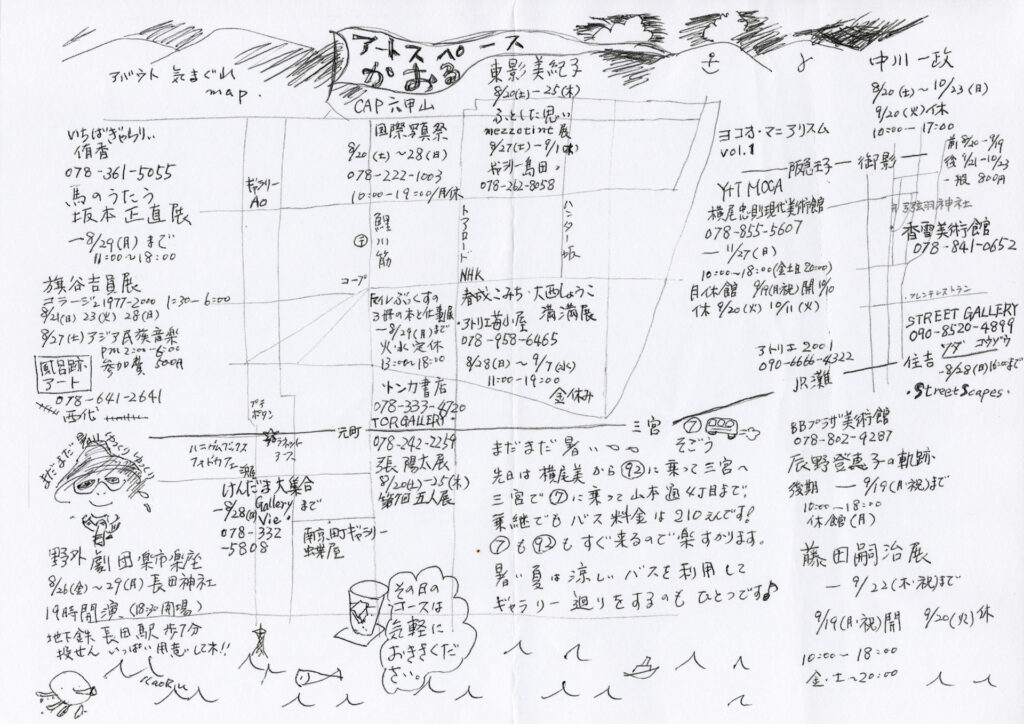 アートスペース
かおる
アバウト 気まぐれ
map.
CAP 六甲山
東影美紀子
8/20(土)~25(木)
ふとした思い
mezzotint展
8/27(土)~9/1(木)
ギャラリー島田
078-262-8058
中川一政
8/20(土)~10/23(日)
9/20(火)休
10:00~17:00
前8/20~9/19
後9/21~10/23
一般 800円
いちばぎゃらりぃ
侑香
078-361-5055
馬のうたう
坂本正直展
―8/29(月)まで
11:00~18:00
国際写真祭
8/20(土)~28(日)
078-222-1003
10:00~19:00/月休
ギャラリー
AO
鯉川筋
⑦
コープ
トアロード
NHK
ハンター坂
ヨコオ・マニアリスム
vol.1
阪急王子
御影
Y+T MOCA
横尾忠則現代美術館
078-855-5607
― 11/27(日)
10:00~18:00(金土 20:00)
月休館 9/19(月・祝)開 10/10
休 9/20(火) 10/11(火)
弓弦羽神社
香雪美術館
078-841-0652
フレンチレストラン
STREET GALLERY
090-8520-4899
ソダ コウゾウ
住吉
~8/28(日)16:00まで
・StreetScapes・
旗谷吉員展
コラージュ1977-2000 1:30-6:00
8/21(日) 23(火) 28(日)
8/27(土) アジア民族音楽
pm 2:00~6:00
参加費 500円
風呂跡
アート
078-641-2641
西代
3冊の本と仕事展
~8/29(月)まで
火・水定休
13:00~18:00
トンカ書店
078-333-4720
TOR GALLERY
078-242-2259
張 陽太展
8/20(土)~25(木)
第9回 五人展
春成こみち・大西しょうこ
満満展
アトリエ苺小屋
078-958-6465
8/28(日)~9/7(水)
11:00~19:00
金休み
アトリエ2001
090-6666-4322
JR灘
プチ
ボタン
元町
三宮
⑦
そごう
ハニカムブックス
フォトカフェ
プラネット
アース
けんだま大集合
~8/28(日)まで
Gallery
Vie
078-332
-5808
南京町ギャラリー
蝶屋
まだまだ暑い
先日は横尾美から92に乗って三宮へ
三宮で⑦に乗って山本通4丁目まで。
乗継でもバス料金は210えんです!
⑦も92もすぐ来るので楽すかります。
暑い夏は涼しいバスを利用して
ギャラリー廻りをするのもひとつです♪
BBプラザ美術館
078-802-9287
辰野登恵子の軌跡
後期 ― 9/19(月・祝)まで
10:00~18:00
休館(月)
藤田嗣治展
― 9/22(木・祝)まで
9/19(月・祝)開 9/20(火)休
10:00~18:00
金・土~20:00
まだまだ暑い
ゆっくりゆっくり
野外劇団楽市楽座
8/26(金)~29(月) 長田神社
19時開演(18:30開場)
地下鉄長田駅歩7分
投せんいっぱい用意して木!!
その日の
コースは
気軽に
おききくだ
さい。
KaoRu